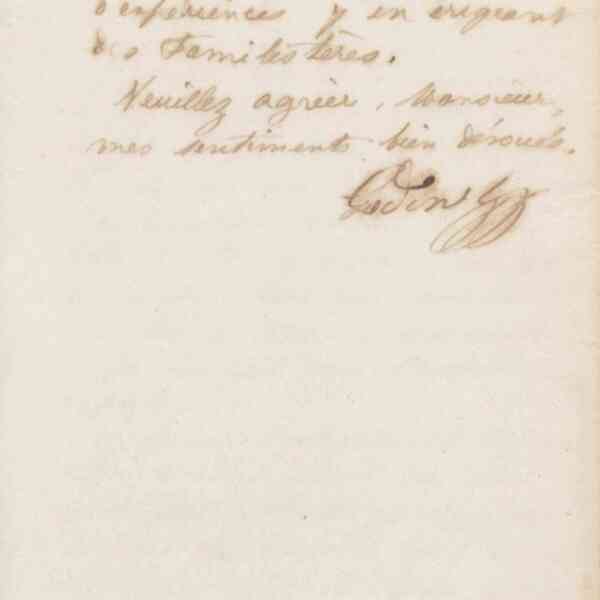 d'expériences y en érigeant
des Familistères.
Veuillez agréer, Monsieur,
mes sentiments bien dévoués.
Godin